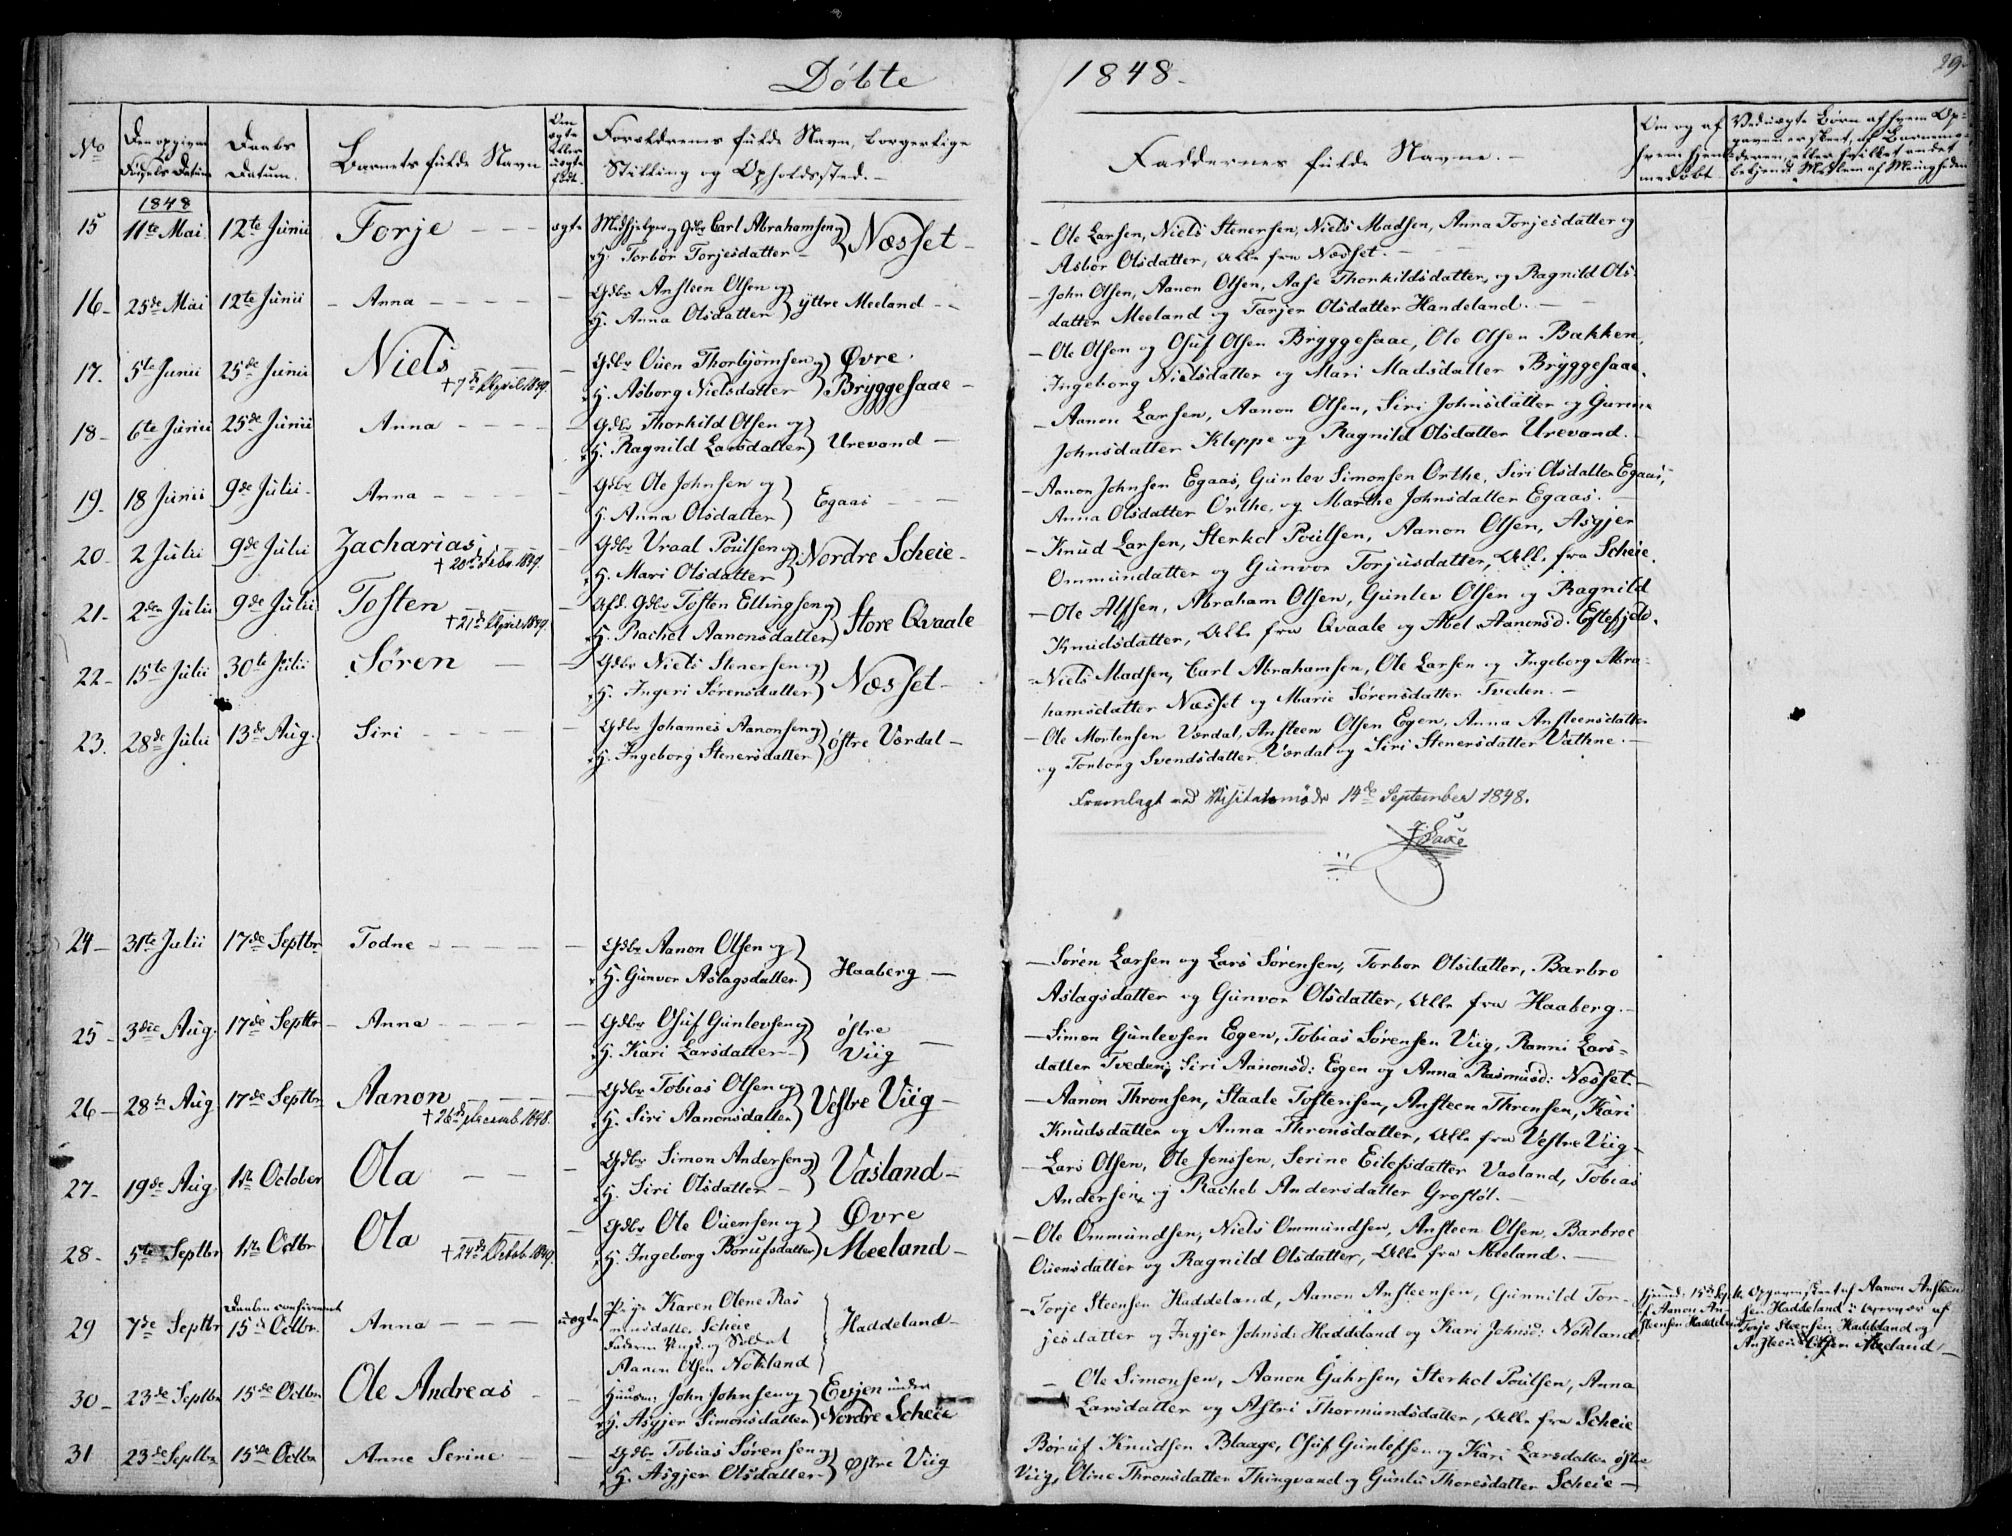 Døbte 1848.
29.
No
Den opgivne Fødsels Datum
Daabs Datum.
Barnets fulde Navn
Om ægte eller uægte født.
Forældrenes fulde Navn, borgerlige Stilling og Opholdssted.
Faddernes fulde Navne.
Om og af hvem hjemmedøbt
Ved uægte Børn af hvem Opgaven er skeet, af Barnemoderen, eller hvilket andet bekjendt Medlem af Menigheden
1848
15 11te Mai 12te Junii Torje ægte Medhjelper og Gdbr Carl Abrahamsen og
H. Torbor Torjesdatter Næsset
Ole Larsen, Niels Stenersen, Niels Madsen, Anna Torjesdatter og
Asbor Olsdatter, Alle fra Næsset.
16 25de Mai 12te Junii Anna Gdbr Ansteen Olsen og
H. Anna Olsdatter yttre Meeland
John Olsen, Aanon Olsen, Aase Thorkildsdatter, og Ragnild Ols-
datter Meeland og Tarjer Olsdatter Handeland.
17. 5te Junii 25de Junii Niels † 7de April 1849. Gdbr Ouen Thorbjørnsen og
H. Asborg Nielsdatter Øvre Bryggesaae
Ole Olsen og Osuf Olsen Bryggesaae, Ole Olsen Bakken,
Ingeborg Nielsdatter og Mari Madsdatter Bryggesaae.
18 6te Junii 25de Junii Anna Gdbr Thorkild Olsen og
H. Ragnild Larsdatter Urevand
Aanon Larsen, Aanon Olsen, Siri Johnsdatter og Gurine
Johnsdatter Kleppe og Ragnild Olsdatter Urevand.
19. 18 Junii 9de Julii Anna Gdbr Ole Johnsen og
H. Anna Olsdatter Egaas
Aanon Johnsen Egaas, Gunlev Simonsen Orthe, Siri Olsdatter Egaas,
Anna Olsdatter Orthe, og Marthe Johnsdatter Egaas.
20 2 Julii 9de Julii Zacharias Gdbr Vraal Poulsen og
H. Mari Olsdatter Nordre Scheie
Knud Larsen, Sterkol Poulsen, Aanon Olsen, Asgjer
Ommundatter og Gunvor Torjusdatter, Alle fra Scheie.
21. 2den Julii 9de Julii Tosten † 21de April 1849. Afd. Gdbr Tosten Ellingsen og
H. Rachel Aanonsdatter Store Qvaale
Ole Alfsen, Abraham Olsen, Gunlev Olsen og Ragnild
Knudsdatter, Alle fra Qvaale og Abel Aanonsd: Eftefjeld.
22 15te Julii 30te Julii Søren Gdbr Niels Stenersen og
H. Ingeri Sørensdatter Næsset
Niels Madsen, Carl Abrahamsen, Ole Larsen og Ingeborg Abra-
hamsdatter Næsset og Marie Sørensdatter Tveden.
23. 28de Julii 13de Aug. Siri Gdbr Johannes Aanonsen og
H. Ingeborg Stenersdatter østre Værdal
Ole Mortensen Værdal, Ansteen Olsen Egen, Anna Ansteensdatter
og Tonborg Svendsdatter Værdal og Siri Stenersdatter Vathne.
Fremlagt ved Visitatsmøde 14de September 1848.
24 31te Julii 17de Septbr Todne Gdbr Aanon Olsen og
H. Gunvor Aslagsdatter Haaberg
Søren Larsen og Lars Sørensen, Torbor Olsdatter, Barbro
Aslagsdatter og Gunvor Olsdatter, Alle fra Haaberg.
25 3die Aug. 17de Septbr Anna Gdbr Osuf Gunlevsen og
H. Kari Larsdatter østre Viig
Simon Gunlevsen Egen, Tobias Sørensen Viig, Ranni Lars-
datter Tveden, Siri Aanonsd: Egen og Anna Rasmusd: Næsset.
26 28de Aug 17de Septbr Aanon † 26de Decemb. 1848. Gdbr Tobias Olsen og
H. Siri Aanonsdatter Vestre Viig
Aanon Thronsen, Staale Tostensen, Ansteen Thronsen, Kari
Knudsdatter og Anna Thronsdatter, Alle fra Vestre Viig
27 19de Aug. 1ste October Ola Gdbr Simon Andersen og
H. Siri Olsdatter Vasland
Lars Olsen, Ole Jenssen, Serine Eilefsdatter Vasland, Tobias
Andersen og Rachel Andersdatter Grostøl.
28 5te Septbr 1ste Octbr Ola † 24de Octob. 1849. Gdbr Ole Ouensen og
H. Ingeborg Borufsdatter Øvre Meeland
Ole Ommundsen, Niels Ommundsen, Ansteen Olsen, Barbroe
Ouensdatter og Ragnild Olsdatter, Alle fra Meeland.
29 7de Septbr Daaben confirmeret 15de Octbr. Anna uægte Pige Karen Olene Ras
musdatter Scheie
Faderen Ungk. og Soldat
Aanon Olsen Nokland Haddeland
Torje Steensen Haddeland, Aanon Ansteensen, Gunnild Tor-
jesdatter og Ingjer Johnsd: Haddeland og Kari Johnsd: Nokland
hjemd: 15de Sept. af Aanon Ansteensen Haddeland
Opgaven skeet af Aanon Ansteen
sen Haddeland i Overvær af
Torje Steensen Haddeland og
Ansteen Olsen Meeland
30 23de Septbr 15de Octbr Ole Andreas Huusm: John Johnsen og
H. Asgjer Simonsdatter Evjen under Nordre Scheie
Ole Simonsen, Aanon Guhrsen, Sterkol Poulsen, Anna
Larsdatter og Astri Thormundsdatter, Alle fra Scheie
31 23de Septbr 15de Octbr Anne Serine Gdbr Tobias Sørensen og
H. Asgjer Olsdatter Østre Viig
Boruf Knudsen Blaage, Osuf Gunlefsen og Kari Larsdatter østre
Viig, Oline Thronsdatter Thingvand og Gunlu Thoresdatter Scheie